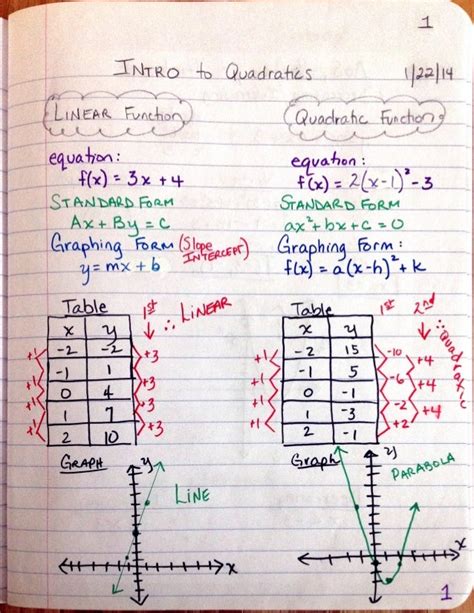 1
INTRO to Quadratics 1/22/14
LINEAR Function
equation:
f(x) = 3x + 4
STANDARD FORM
Ax + By = C
Graphing Form (Slope INTERCEPT)
y = mx + b
Table 1st ∴ LINEAR
x y
-2 -2
-1 1
0 4
1 7
2 10
+1 +3
+1 +3
+1 +3
+1 +3
GRAPH
y
LINE
x
Quadratic Function
equation:
f(x) = 2(x-1)² - 3
STANDARD FORM
ax² + bx + c = 0
Graphing Form:
f(x) = a(x-h)² + k
Table 1st 2nd ∴ Quadratic
x y
-2 15
-1 5
0 -1
1 -3
2 -1
+1 -10
+1 -6 +4
+1 -2 +4
+1 +2 +4
Graph
y
PARABOLA
x
1